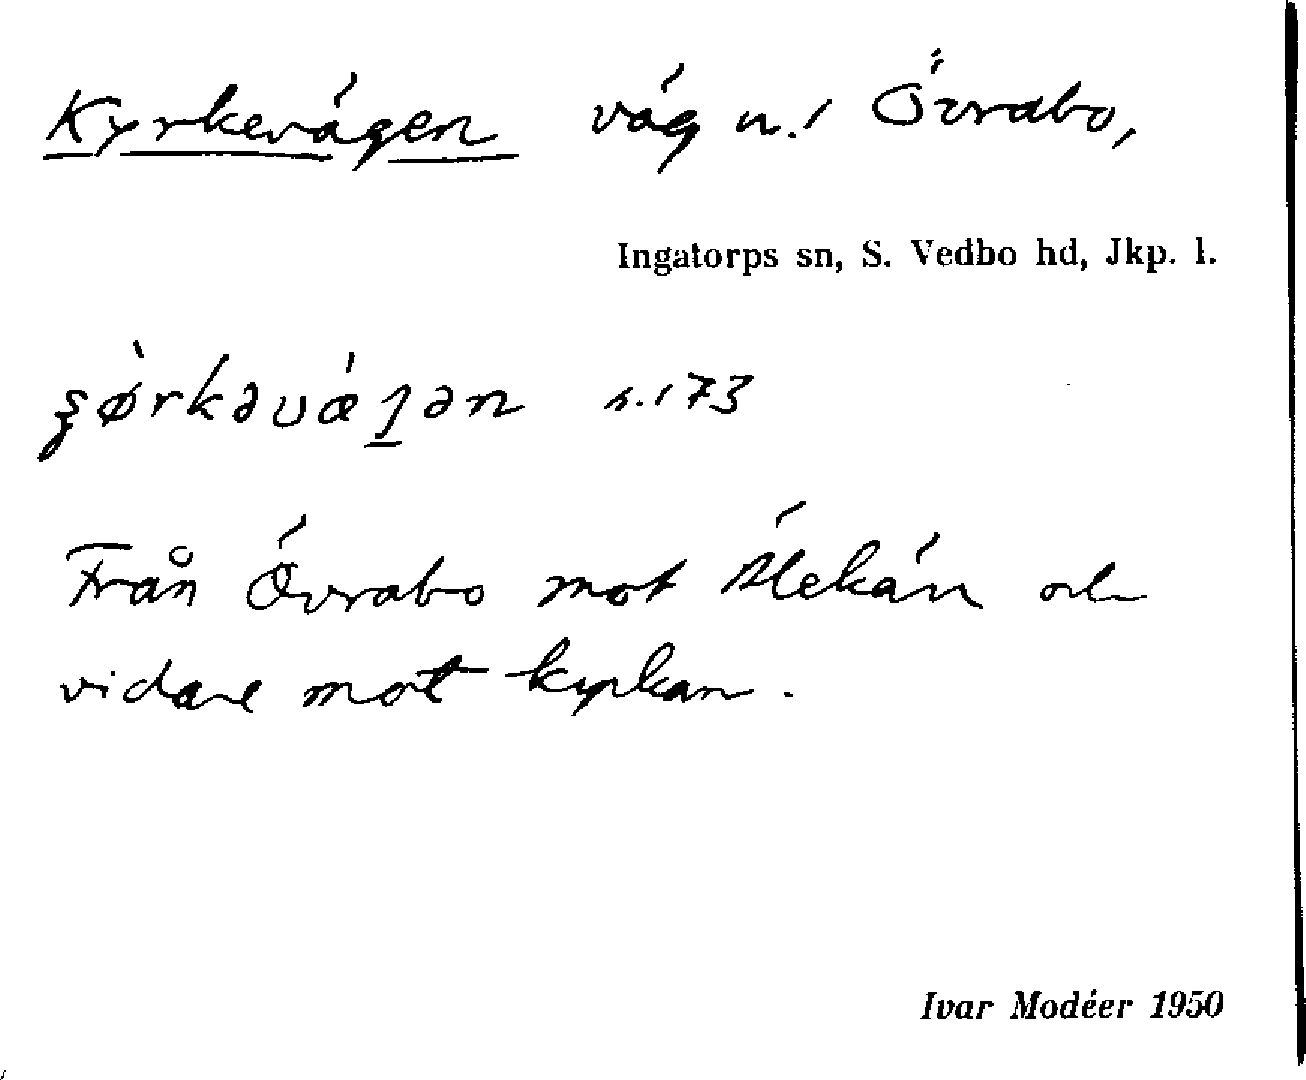 Kyrkevägen väg n. / Övrabo,
Ingatorps sn, S. Vedbo hd, Jkp. l.
s. 173
Från Övrabo mot och
vidare mot kyrkan.
Ivar Modéer 1950